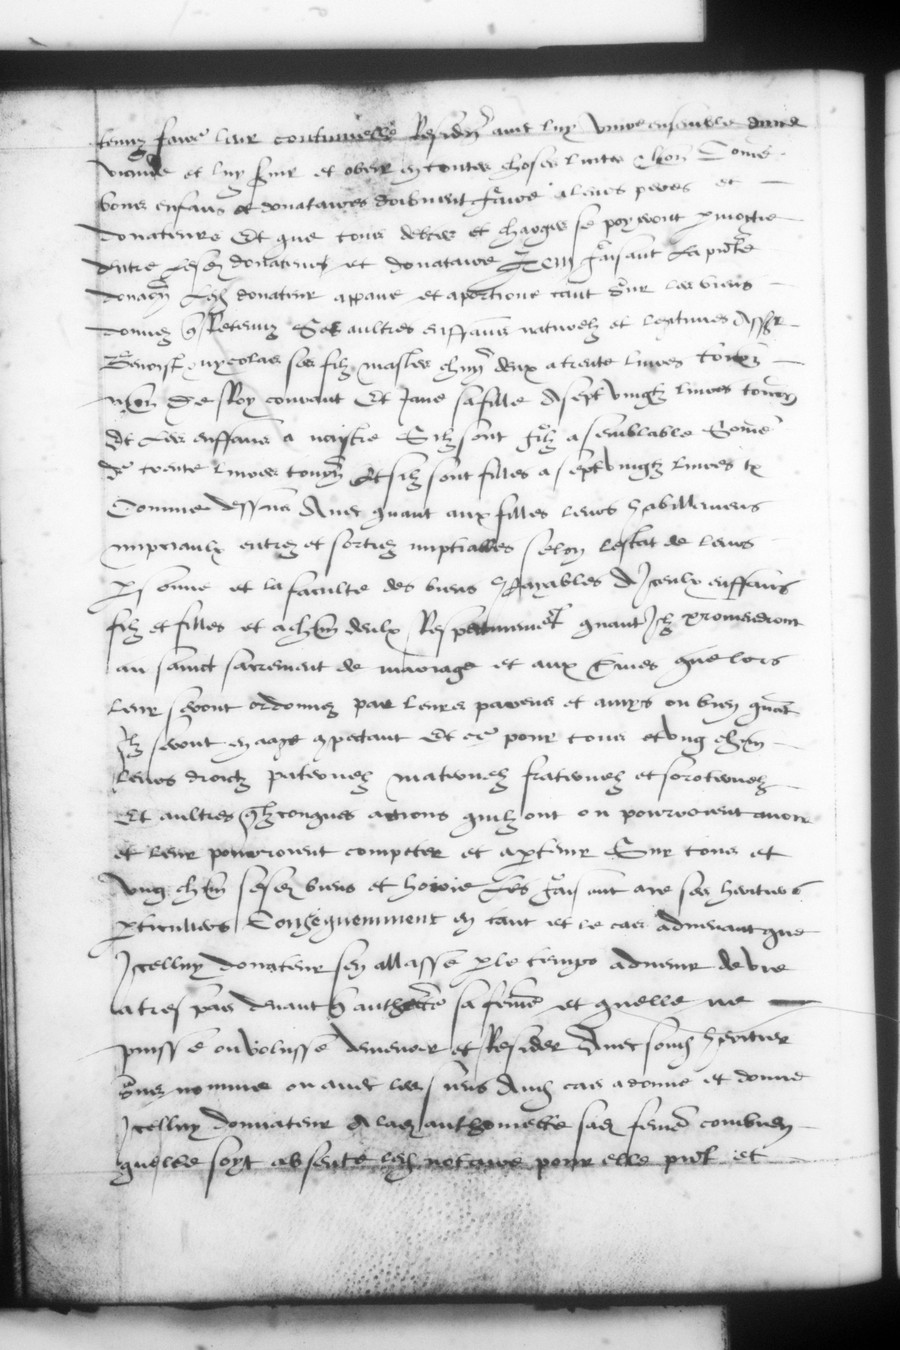 tenuz faire leur continuelle residen avec luy vivre ensemble avec
viande et luy servir et obeir en toutes choses licites Comme
bons enfans et donataires doibvent faire a leurs peres et
donateurs Et que tous debtes et charges se poyeront par moytie
entre lesd donateurs et donataire Item faisant la pnte
donaon led donateur appane et aportionne tant sur les biens
donnez que retenuz Ses aultres enffans naturelz et legitimes Assr
Benoist nycolas ses filz masles chun deulx a trente livres tourn
de Roy courant Et Jane sa fille A sept vingtz livres tourn
Et les enffans a naistre Silz sont filz a semblable Somme
de trente livres tourn Et silz sont filles a sept vingtz livres tz
Comme dessus Avec quant aux filles leurs habillemens
nupciaulx entrez et sortiez nuptialles selon lestat de leurs
psonne et la faculte des biens payables A Jceulx enffans
filz et filles et a chun deulx Respectivement quant Jlz proviendront
au sainct sacrement de mariage et aux termes que lors
leur seront ordonnez par leurs parens et amys ou bien quant
Jlz seront en aage competant Et ce pour tous et ung chun
leurs droictz paternelz maternelz fraternelz et sororternelz
Et aultres qlzconques actions quilz ont ou pourroient avoir
et leur pourroient compecter et aptenir Sur tous et
ung chun sesd biens et hoirie Les faisant avec ses heritiers
pticuliers Consequemment en tant et le cas advenant que
Jcelluy donateur sen allasse p le temps advenir de vie
a trespas devant sa femme et quelle ne
puisse ou volusse demeurer et Resider Avec sond heritier
nomme ou avec les siens Aud cas a donne et donne
Jcelluy donnateur A lad anthonnette sad femme combien
quelle soyt absente led notaire pour elle pnt et